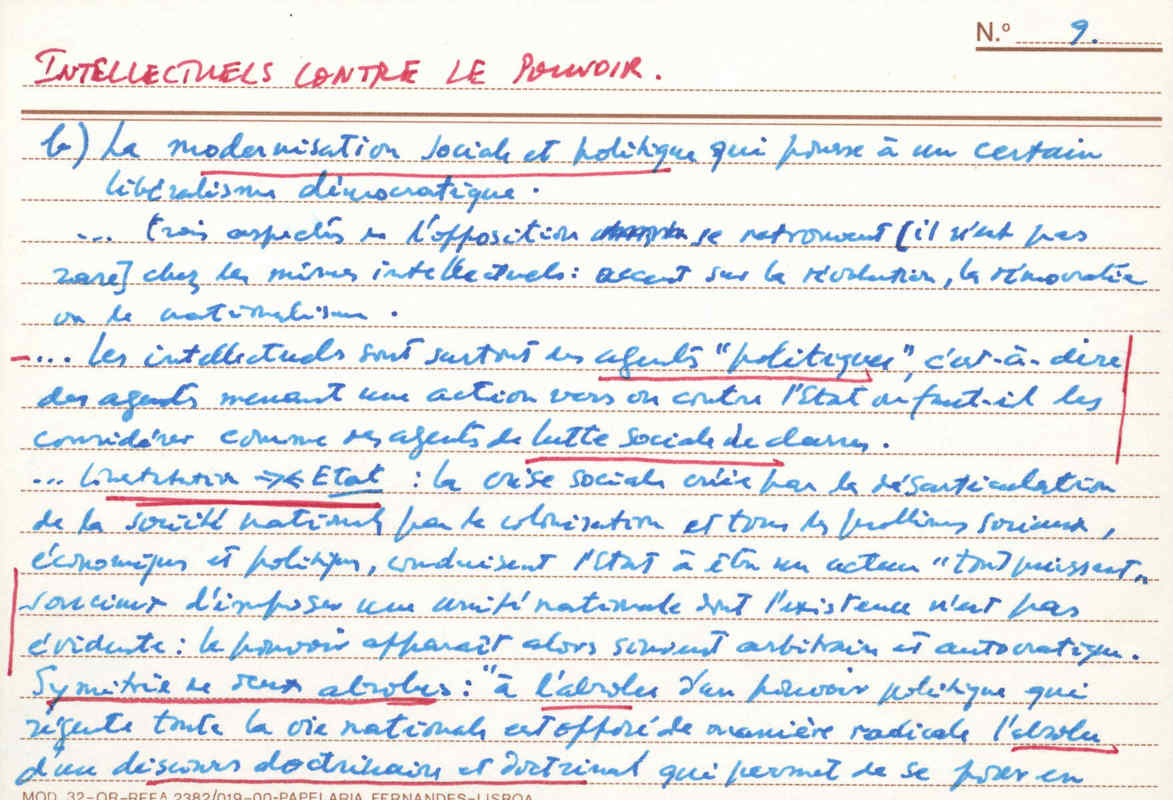 N.º 9.
INTELLECTUELS CONTRE LE POUVOIR.
b) La modernisation sociale et politique qui pousse à un certain
libéralisme démocratique.
... trois aspects de l'opposition se retrouvent [il n'est pas
rare] chez les mêmes intellectuels : accent sur la révolution, la démocratie
ou le nationalisme.
-... Les intellectuels sont surtout des agents "politiques", c'est-à-dire
des agents menant une action vers ou contre l'Etat ou faut-il les
considérer comme des agents de lutte sociale de classes.
... Etat : la crise sociale créée par la désarticulation
de la société nationale par la colonisation et tous les problèmes sociaux,
économiques et politiques, conduisent l'Etat à être un acteur "tout puissant"
soucieux d'imposer une unité nationale dont l'existence n'est pas
évidente : le pouvoir apparaît alors souvent arbitraire et autocratique.
Symétrie de deux absolus : "à l'absolu d'un pouvoir politique qui
régente toute la vie nationale est opposé de manière radicale l'absolu
d'un discours doctrinaire et doctrinal qui permet de se poser en
MOD. 32-OR-REFA 2382/019-00-PAPELARIA FERNANDES-LISBOA